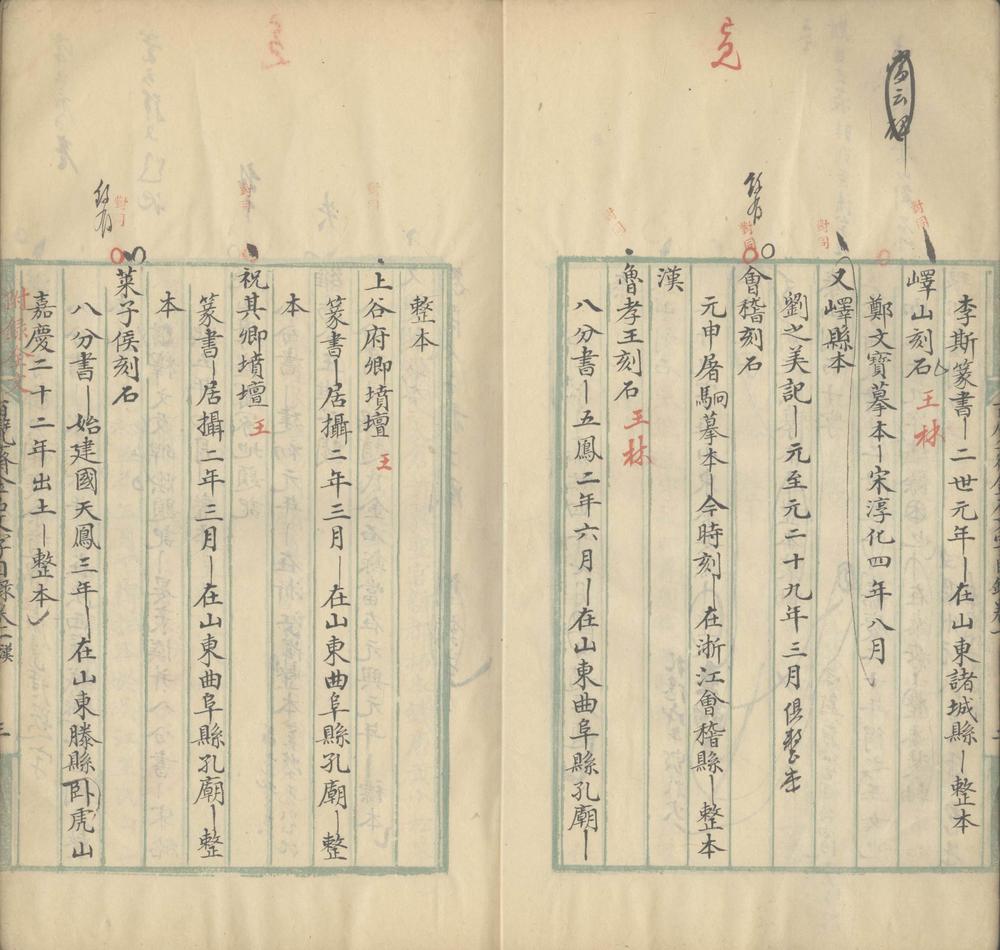 李斯篆書－二世元年－在山東諸城縣－整本
嶧山刻石 王 林
對同
鄭文寶摹本－宋淳化四年八月
又嶧縣本
對同
劉之美記－元至元二十九年三月俱整本
會稽刻石
對同
元申屠駉摹本－今時刻－在浙江會稽縣－整本
漢
魯孝王刻石 王 林
對同
八分書－五鳳二年六月－在山東曲阜縣孔廟－
整本
上谷府卿墳壇 王
對同
篆書－居攝二年三月－在山東曲阜縣孔廟－整
本
祝其卿墳壇 王
對同
篆書－居攝二年三月－在山東曲阜縣孔廟－整
本
萊子侯刻石
對同
八分書－始建國天鳳三年－在山東滕縣臥虎山
嘉慶二十二年出土－整本
金石文字目錄卷二 漢 三